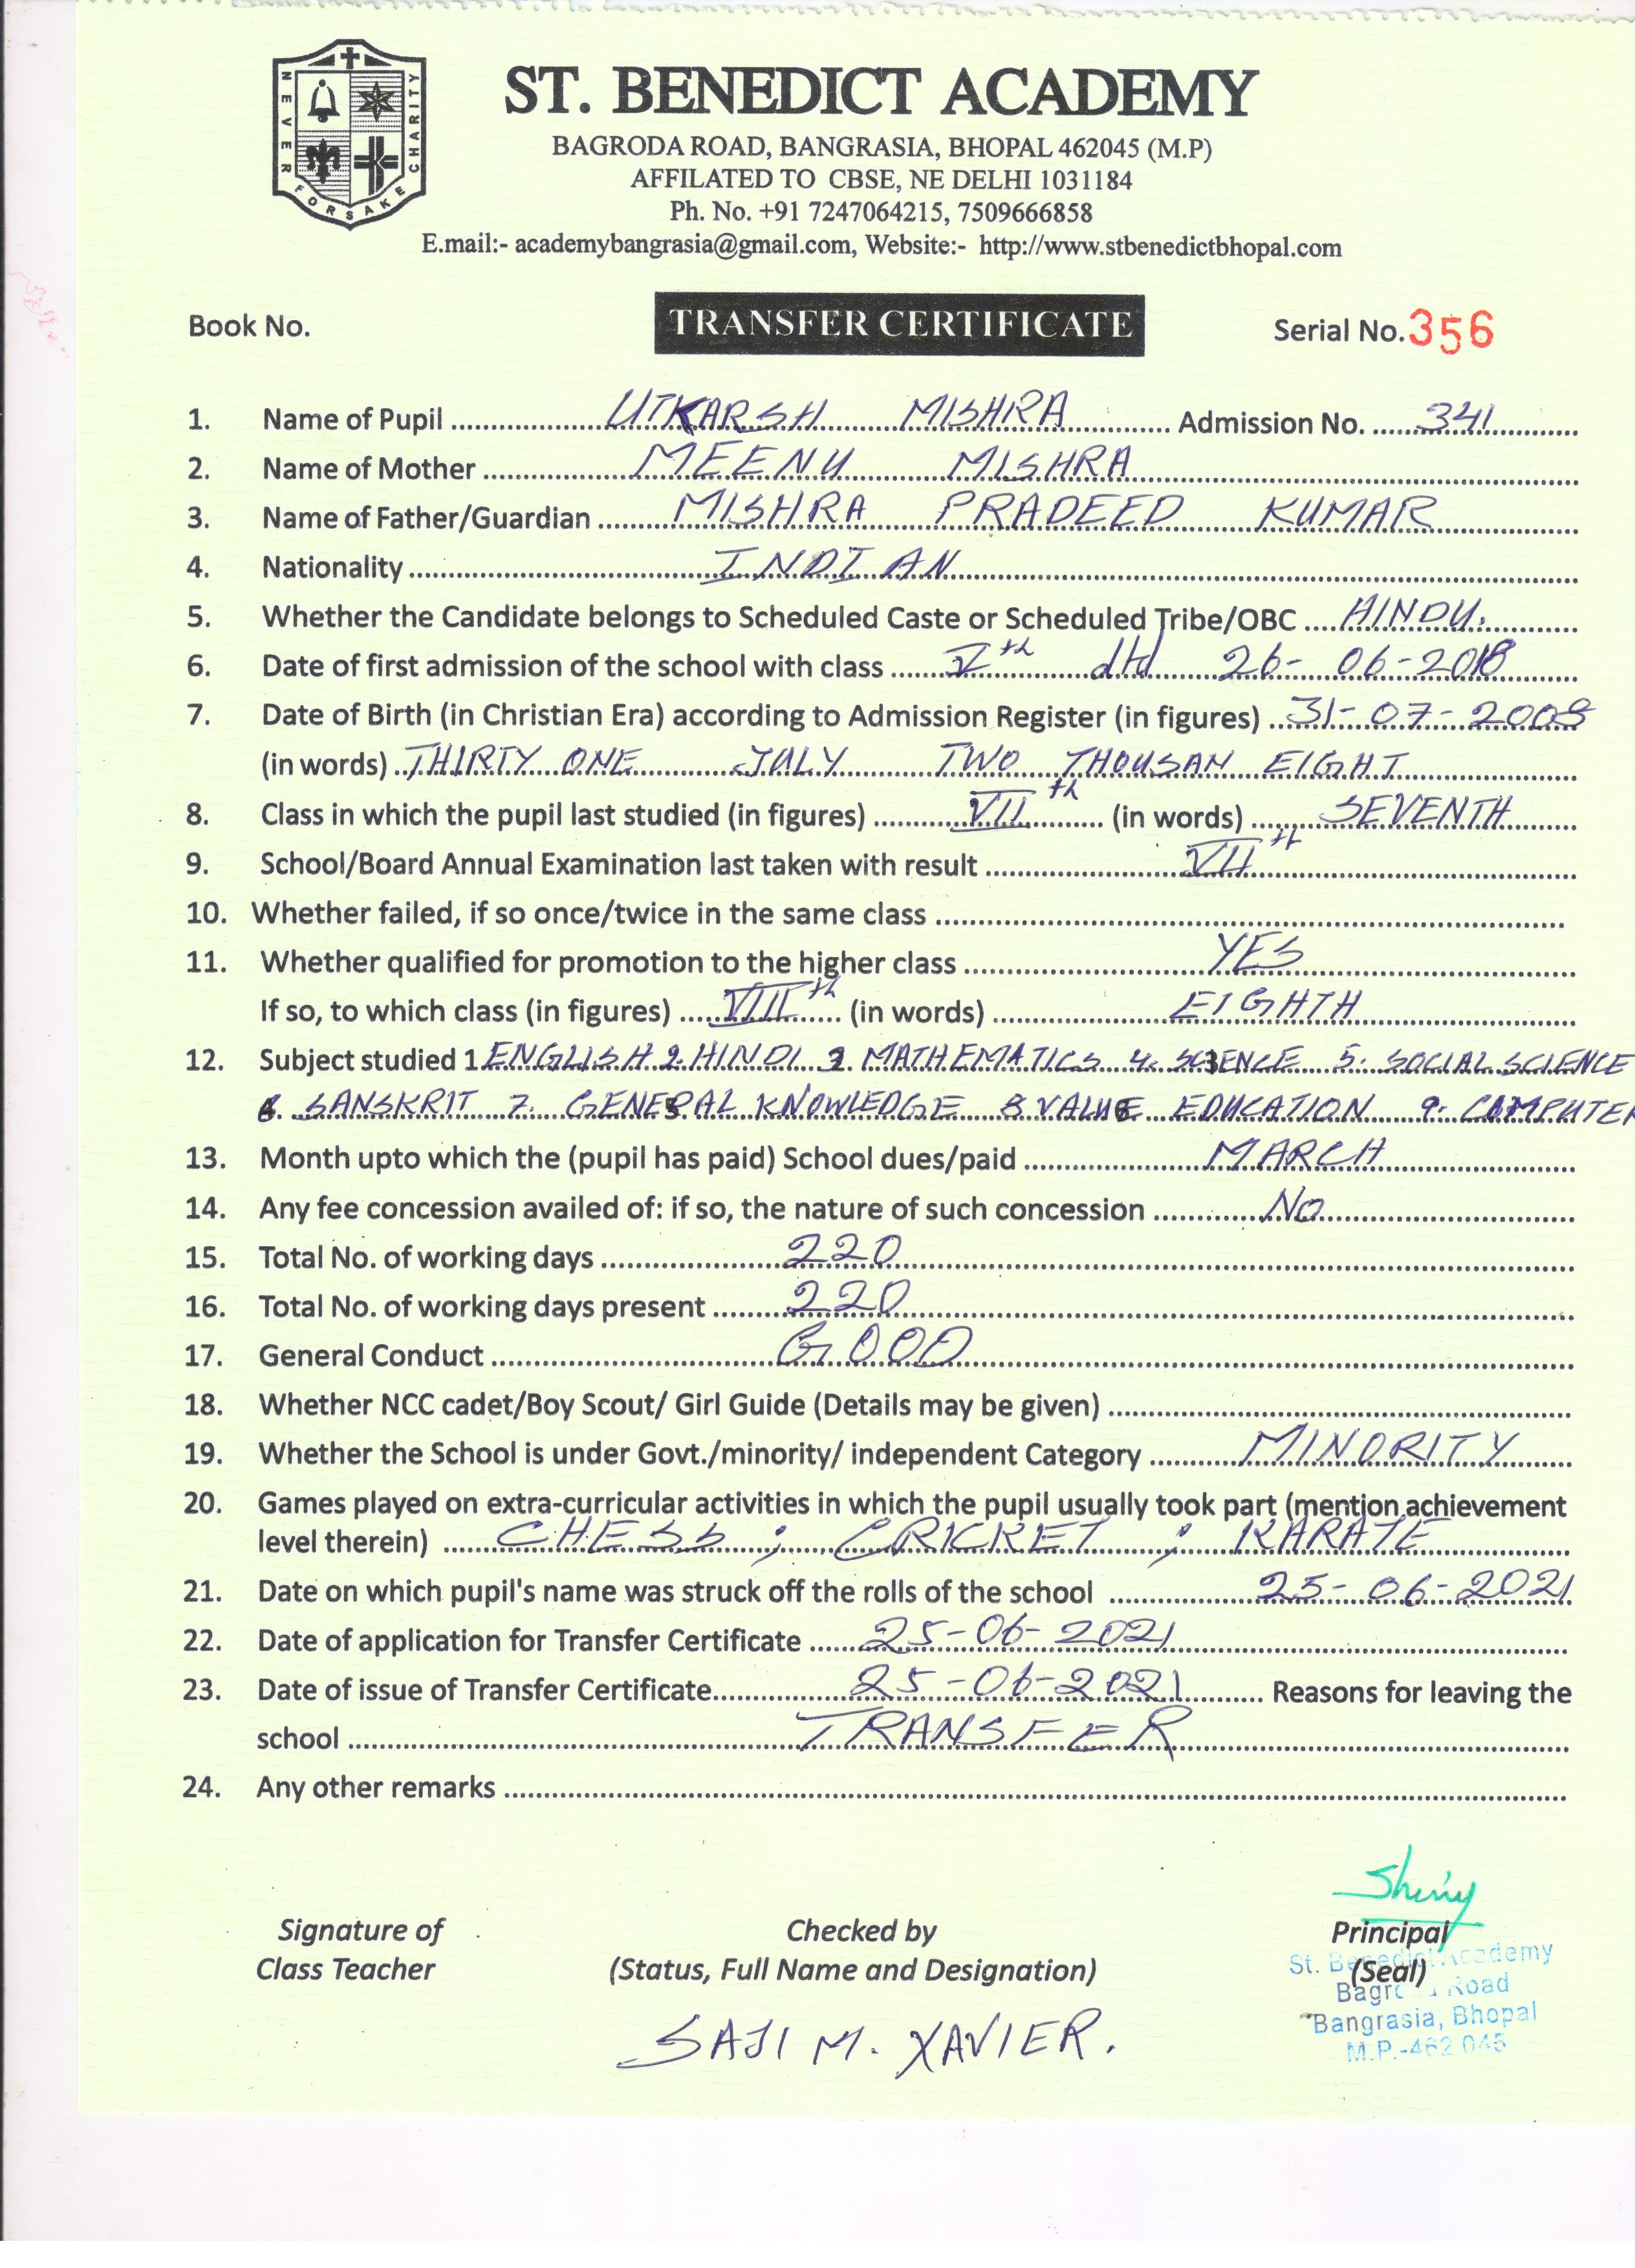 NEVER FORSAKE CHARITY
ST. BENEDICT ACADEMY
BAGRODA ROAD, BANGRASIA, BHOPAL 462045 (M.P)
AFFILATED TO CBSE, NE DELHI 1031184
Ph. No. +91 7247064215, 7509666858
E.mail:- academybangrasia@gmail.com, Website:- http://www.stbenedictbhopal.com
Book No. TRANSFER CERTIFICATE Serial No. 356
1. Name of Pupil UTKARSH MISHRA Admission No. 341
2. Name of Mother MEENU MISHRA
3. Name of Father/Guardian MISHRA PRADEED KUMAR
4. Nationality INDIAN
5. Whether the Candidate belongs to Scheduled Caste or Scheduled Tribe/OBC HINDU.
6. Date of first admission of the school with class Vth dtd 26-06-2018
7. Date of Birth (in Christian Era) according to Admission Register (in figures) 31-07-2008
(in words) THIRTY ONE JULY TWO THOUSAN EIGHT
8. Class in which the pupil last studied (in figures) VIIth (in words) SEVENTH
9. School/Board Annual Examination last taken with result VIIth
10. Whether failed, if so once/twice in the same class
11. Whether qualified for promotion to the higher class YES
If so, to which class (in figures) VIIIth (in words) EIGHTH
12. Subject studied 1 ENGLISH 2. HINDI 3. MATHEMATICS 4. SCIENCE 5. SOCIAL SCIENCE
6. SANSKRIT 7. GENERAL KNOWLEDGE 8 VALUE EDUCATION 9. COMPUTER
13. Month upto which the (pupil has paid) School dues/paid MARCH
14. Any fee concession availed of: if so, the nature of such concession NO
15. Total No. of working days 220
16. Total No. of working days present 220
17. General Conduct GOOD
18. Whether NCC cadet/Boy Scout/ Girl Guide (Details may be given)
19. Whether the School is under Govt./minority/ independent Category MINORITY
20. Games played on extra-curricular activities in which the pupil usually took part (mention achievement
level therein) CHESS ; CRICKET ; KARATE
21. Date on which pupil's name was struck off the rolls of the school 25-06-2021
22. Date of application for Transfer Certificate 25-06-2021
23. Date of issue of Transfer Certificate 25-06-2021 Reasons for leaving the
school TRANSFER
24. Any other remarks
Signature of Checked by Principal
Class Teacher (Status, Full Name and Designation) (Seal)
St. Benedict Academy
Bagroda Road
Bangrasia, Bhopal
M.P.-462 045
SAJI M. XAVIER.